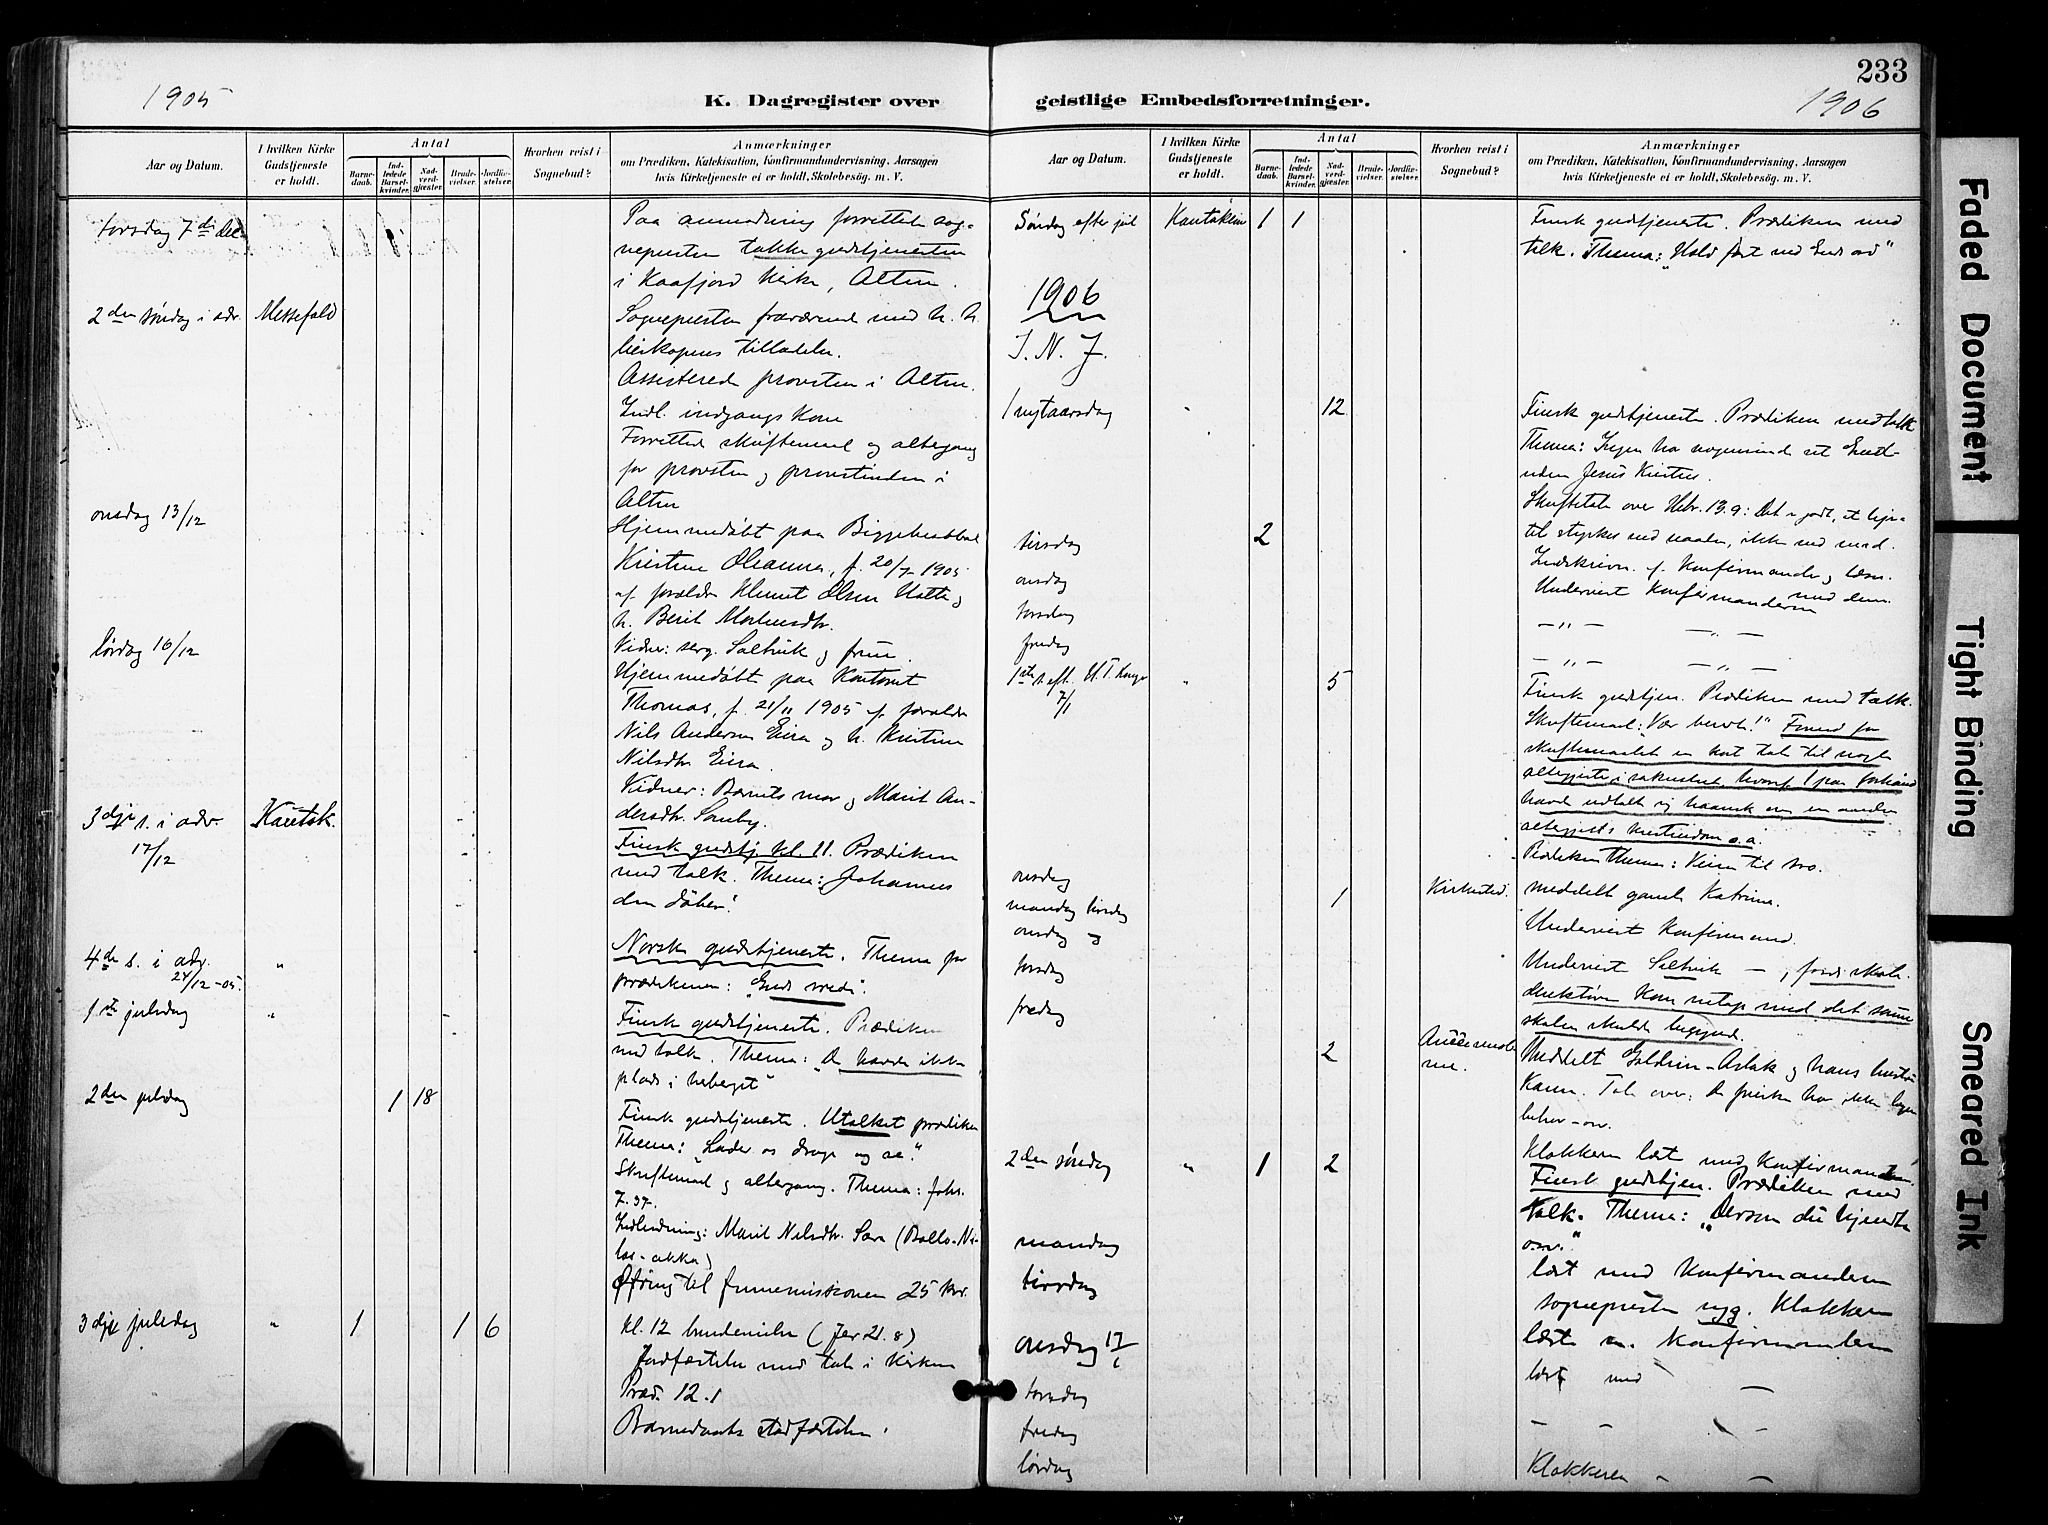 233
1905
K. Dagregister over
geistlige Embedsforretninger.
1906
Aar og Datum.
I hvilken Kirke
Gudstjeneste
er holdt.
Antal
Barne-
daab.
Ind-
ledede
Barsel-
kvinder.
Nad-
verd-
gjæster.
Brude-
vielser.
Jordfæ-
stelser.
Hvorhen reist i
Sognebud?
Anmærkninger
om Prædiken, Katekisation, Konfirmandundervisning, Aarsagen
hvis Kirketjeneste ei er holdt, Skolebesög. m. V.
torsdag 7de dec.
Paa anmodning forrettet sog-
nepresten takkegudstjenesten
i Kaafjord Kirke, Alten.
2den söndag i adv. Messefald
Sognepresten fraværende med h. h.
biskopens tilladelse.
Assisterede provsten i Alten.
Indl. indgangskone
Forrettede skriftemaal og altergang
for provsten og provstinden i
Alten
onsdag 13/12
Hjemmedöbt paa
Kristine Oleanna, f. 20/7 1905
af forældre Klemet Olsen Hætta og
h. Berit Mortensdtr.
Vidner: serg. Saltvik og frue.
lördag 16/12
Hjemmedöbt paa Kontoret
Thomas, f. 21/11 1905 af forældre
Nils Andersen Eira og h. Kristine
Nilsdtr Eira.
Vidner: Barnets mor og Marit An-
dersdtr. Somby.
3dje s. i adv. Kautok.
17/12
Finsk gudstj. kl. 11. Prædiken
med tolk. Thema: Johannes
den döber.
4de s. i adv. "
24/12 -05.
Norsk gudstjeneste. Thema for
prædikenen: "Guds vrede".
1ste juledag "
Finsk gudstjeneste. Prædiken
med tolk. Thema: "De havde ikke
plads i heberget"
2den juledag 1 18
Finsk gudstjeneste. Utolket prædiken
Thema: "Lader os drage og se."
Skriftemaal og altergang. Thema: Joh.
7.37.
Indledning: Marit Nilsdtr. Sara
Ofring til finnemissionen 25 kr.
3dje juledag " 1 1 6
kl. 12 brudevielse (Jer 21.8)
Jordfæstelse med tale i Kirken
Præd. 12.1
Barnedaabs stadfæstelse.
Aar og Datum.
I hvilken Kirke
Gudstjeneste
er holdt.
Antal
Barne-
daab.
Ind-
ledede
Barsel-
kvinder.
Nad-
verd-
gjæster.
Brude-
vielser.
Jordfæ-
stelser.
Hvorhen reist i
Sognebud?
Anmærkninger
om Prædiken, Katekisation, Konfirmandundervisning, Aarsagen
hvis Kirketjeneste ei er holdt, Skolebesög. m. V.
Söndag efter jul Kautokein 1 1
Finsk gudstjeneste. Prædiken med
tolk. Thema: "Hold fast ved Guds ord"
1906
I. N. J.
1 nytaarsdag " 12
Finsk gudstjeneste. Prædiken med tolk
Thema: Ingen har nogensinde set Gud
uden Jesus Kristus.
Skriftetale over Hebr. 13.9: Det er godt, at hjer-
tet styrkes ved naaden, ikke ved mad.
tirsdag 2
Indskrivn. af Konfirmander og læsn.
med dem.
onsdag
Undervist Konfirmanderne
torsdag
— " — — " —
fredag
— " — — " —
1ste s. eft. H. T. Konge " 5
7/1
Finsk gudstjen. Prædiken med tolk.
Skriftemaal: Vær beredt!" Forud for
skriftemaalet en kort tale til nogle
altergjæster i sakristiet, hvoraf 1 paa forhaand
havde udtalt sig om en anden
altergjæsts kristendom o.a.
Prædiken Thema: Veien til tro.
onsdag 1 Kirkested.
meddelt gamle Katrina.
mandag tirsdag
onsdag og
Undervist Konfirmand.
torsdag
Undervist Saltvik — , fordi skole-
direktören kom netop med det samme
skolen skulde begynde.
fredag
2
Meddelt Aslak og hans hustru
Karen. Tale over: De friske har ikke læge
behov — osv.
Klokkeren læst med Konfirmanderne.
2den söndag " 1 2
Finsk gudstjen. Prædiken med
tolk. Thema: "Dersom du kjendte
osv."
mandag
læst med Konfirmanderne
tirsdag
sognepresten syg. Klokkeren
læste m. Konfirmanderne
onsdag 17/1
læst med —
torsdag
— " —
fredag
lördag
Klokkeren " —
Faded Document
Tight Binding
Smeared Ink